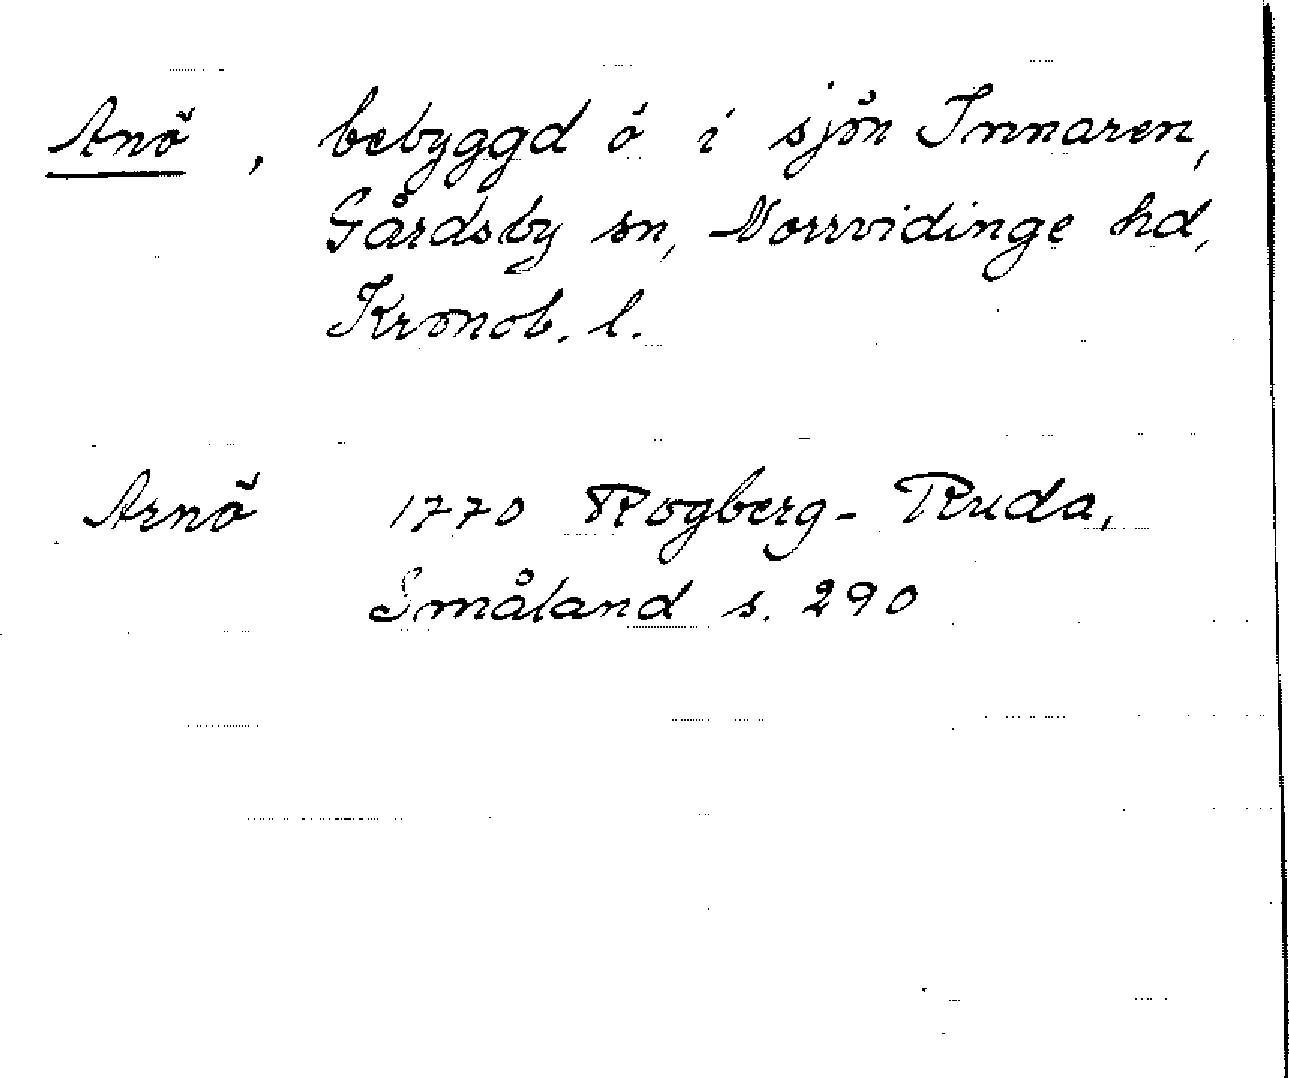 Anö, bebyggd ö i sjön Innaren,
Gårdsby sn, Norrvidinge hd,
Kronob. l.
Arnö 1770 Rogberg-Ruda,
Småland s. 290